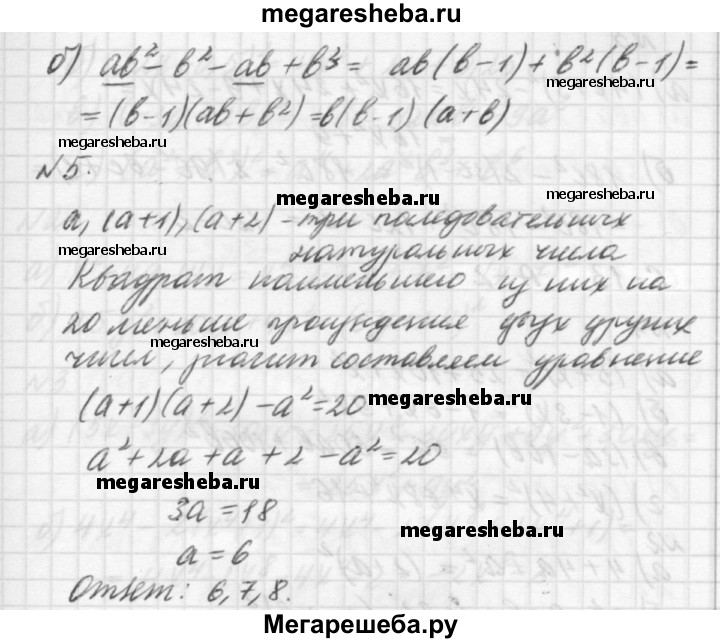 megaresheba.ru
б) ab² - b² - ab + b³ = ab(b-1) + b²(b-1) =
= (b-1)(ab+b²) = b(b-1)(a+b)
megaresheba.ru
megaresheba.ru
№5.
megaresheba.ru
megaresheba.ru
a, (a+1), (a+2) - три последовательных
megaresheba.ru
натуральных числа
Квадрат наименьшего из них на
20 меньше произведения двух других
megaresheba.ru
чисел, значит составляем уравнение
(a+1)(a+2) - a² = 20
megaresheba.ru
a² + 2a + a + 2 - a² = 20
megaresheba.ru
3a = 18
megaresheba.ru
a = 6
Ответ: 6, 7, 8.
Мегарешеба.ру